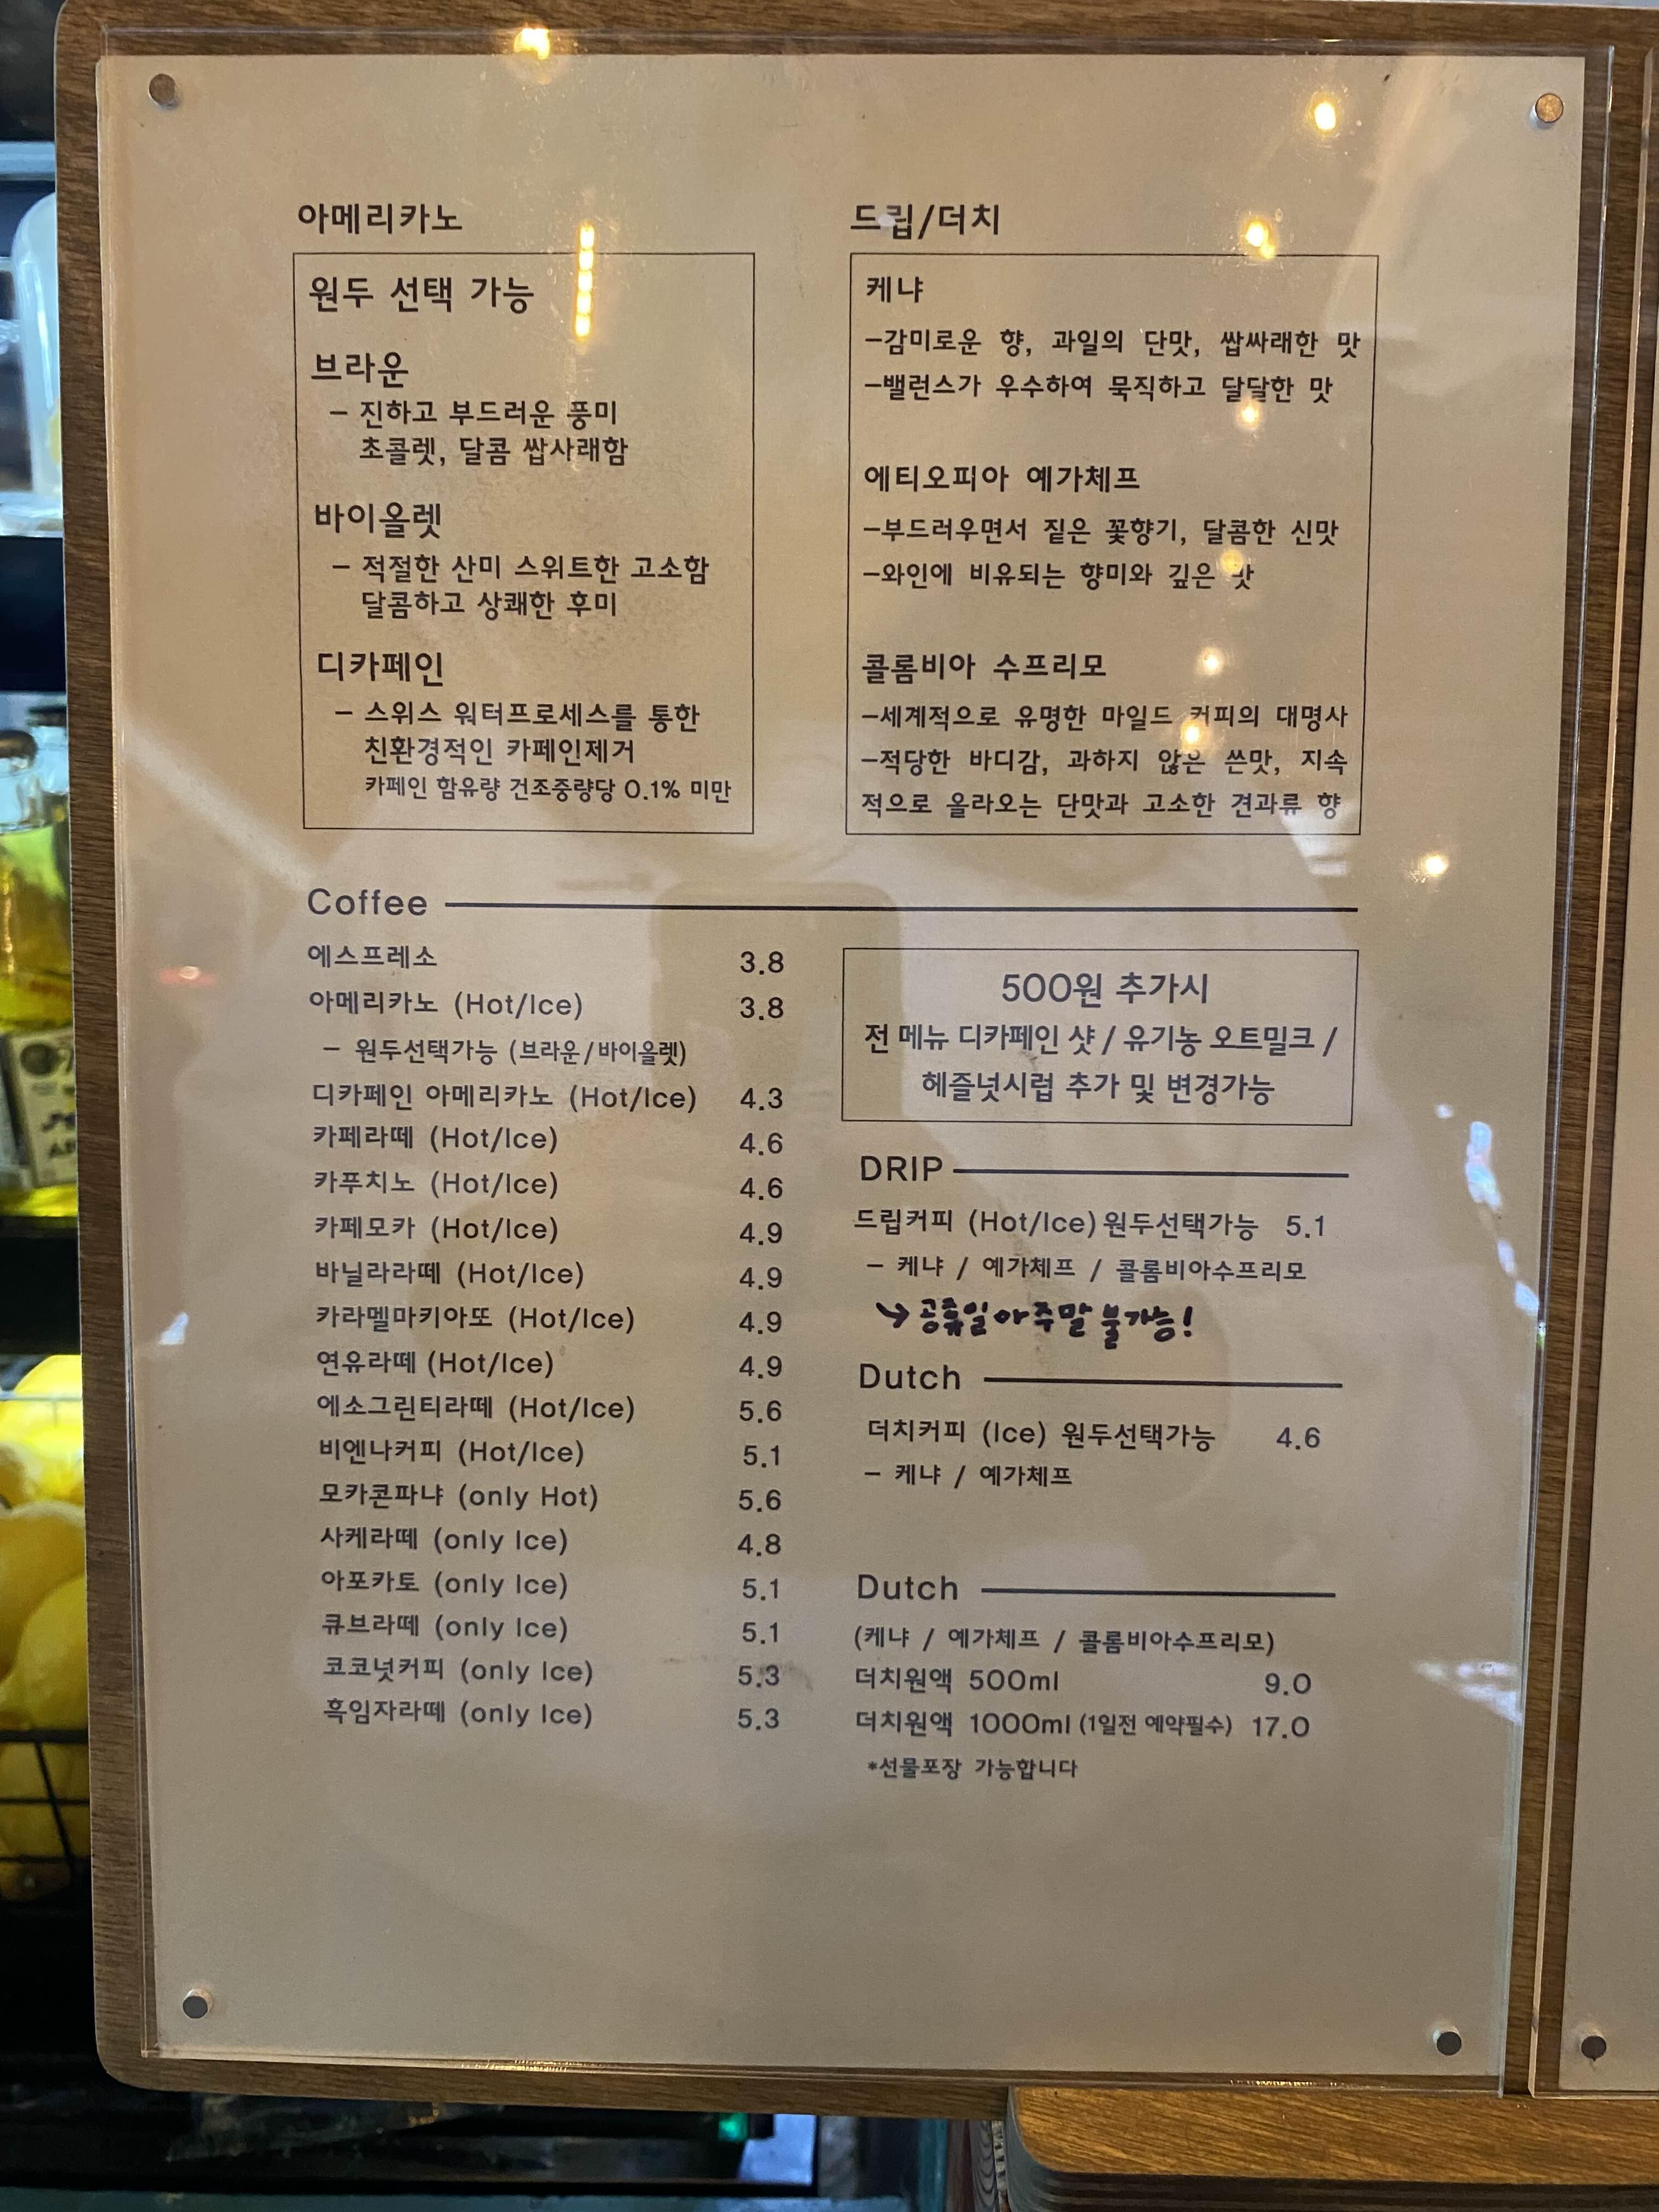 아메리카노
원두 선택 가능
브라운
- 진하고 부드러운 풍미
초콜렛, 달콤 쌉사래함
바이올렛
- 적절한 산미 스위트한 고소함
달콤하고 상쾌한 후미
디카페인
- 스위스 워터프로세스를 통한
친환경적인 카페인제거
카페인 함유량 건조중량당 0.1% 미만
드립/더치
케냐
-감미로운 향, 과일의 단맛, 쌉싸래한 맛
-밸런스가 우수하여 묵직하고 달달한 맛
에티오피아 예가체프
-부드러우면서 짙은 꽃향기, 달콤한 신맛
-와인에 비유되는 향미와 깊은 맛
콜롬비아 수프리모
-세계적으로 유명한 마일드 커피의 대명사
-적당한 바디감, 과하지 않은 쓴맛, 지속
적으로 올라오는 단맛과 고소한 견과류 향
Coffee
에스프레소 3.8
아메리카노 (Hot/Ice) 3.8
- 원두선택가능 (브라운/바이올렛)
디카페인 아메리카노 (Hot/Ice) 4.3
카페라떼 (Hot/Ice) 4.6
카푸치노 (Hot/Ice) 4.6
카페모카 (Hot/Ice) 4.9
바닐라라떼 (Hot/Ice) 4.9
카라멜마키아또 (Hot/Ice) 4.9
연유라떼 (Hot/Ice) 4.9
에소그린티라떼 (Hot/Ice) 5.6
비엔나커피 (Hot/Ice) 5.1
모카콘파냐 (only Hot) 5.6
사케라떼 (only Ice) 4.8
아포카토 (only Ice) 5.1
큐브라떼 (only Ice) 5.1
코코넛커피 (only Ice) 5.3
흑임자라떼 (only Ice) 5.3
500원 추가시
전 메뉴 디카페인 샷 / 유기농 오트밀크 /
헤즐넛시럽 추가 및 변경가능
DRIP
드립커피 (Hot/Ice) 원두선택가능 5.1
- 케냐 / 예가체프 / 콜롬비아수프리모
↳ 공휴일 아 주말 불가능!
Dutch
더치커피 (Ice) 원두선택가능 4.6
- 케냐 / 예가체프
Dutch
(케냐 / 예가체프 / 콜롬비아수프리모)
더치원액 500ml 9.0
더치원액 1000ml (1일전 예약필수) 17.0
*선물포장 가능합니다